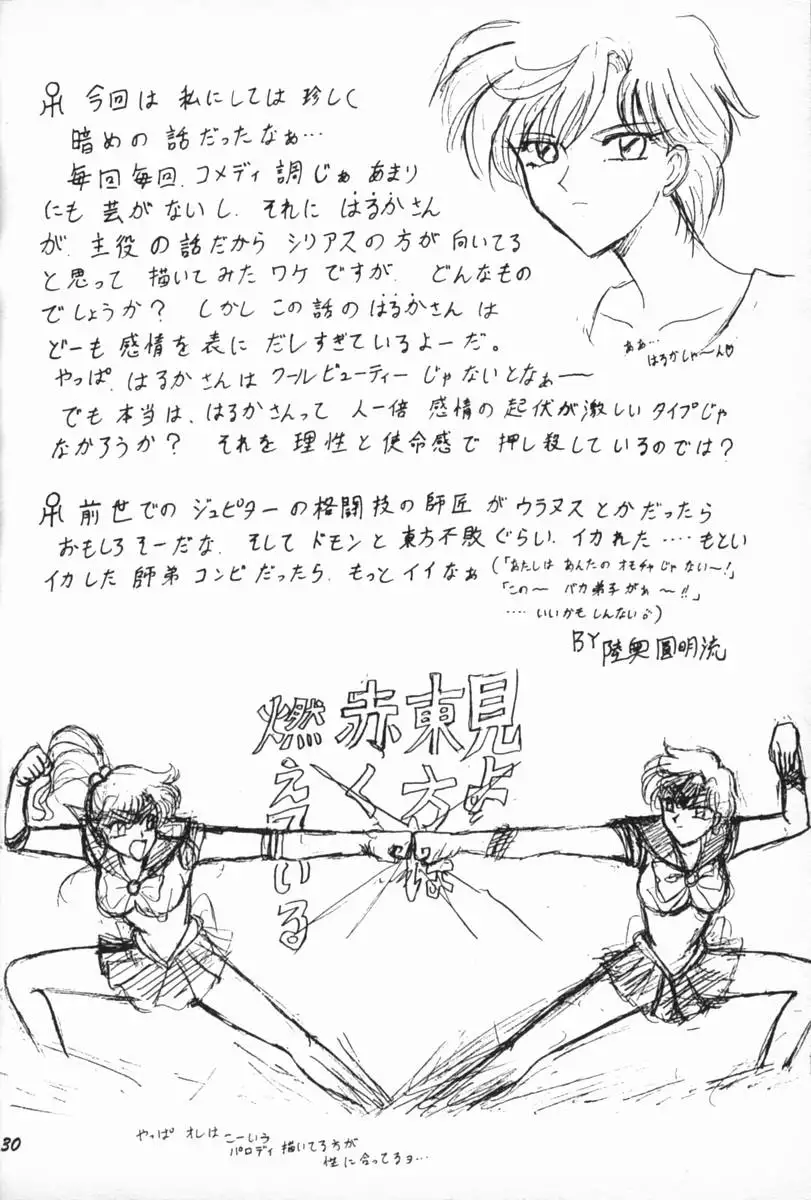 今回は 私にしては 珍しく
暗めの 話だったなぁ…
毎回毎回、コメディ調じゃ あまり
にも 芸がないし、それに はるかさん
が、主役の話だから シリアスの方が向いてる
と思って 描いてみたワケですが、どんなもの
でしょうか? しかし この話のはるかさんは
どーも 感情を表に だしすぎているよーだ。
やっぱ、はるかさんは クールビューティーじゃないとなぁー
でも本当は、はるかさんって 人一倍 感情の起伏が激しいタイプじゃ
なかろうか? それを理性と使命感で 押し殺しているのでは?
ああ…
はるかしゃ〜ん♡
前世での ジュピターの格闘技の師匠が ウラヌスとかだったら
おもしろそーだな、そして ドモンと東方不敗ぐらい、イカれた‥‥もとい
イカした師弟コンビだったら、もっとイイなぁ(「あたしは あんたの オモチャじゃない〜!」
「この〜 バカ弟子がぁ〜!!」
‥‥いいかもしんない)
BY 陸奥圓明流
見よ
東方は
赤く
燃えている
やっぱ オレは こーいう
パロディ描いてる方が
性に合ってるヨ…
30